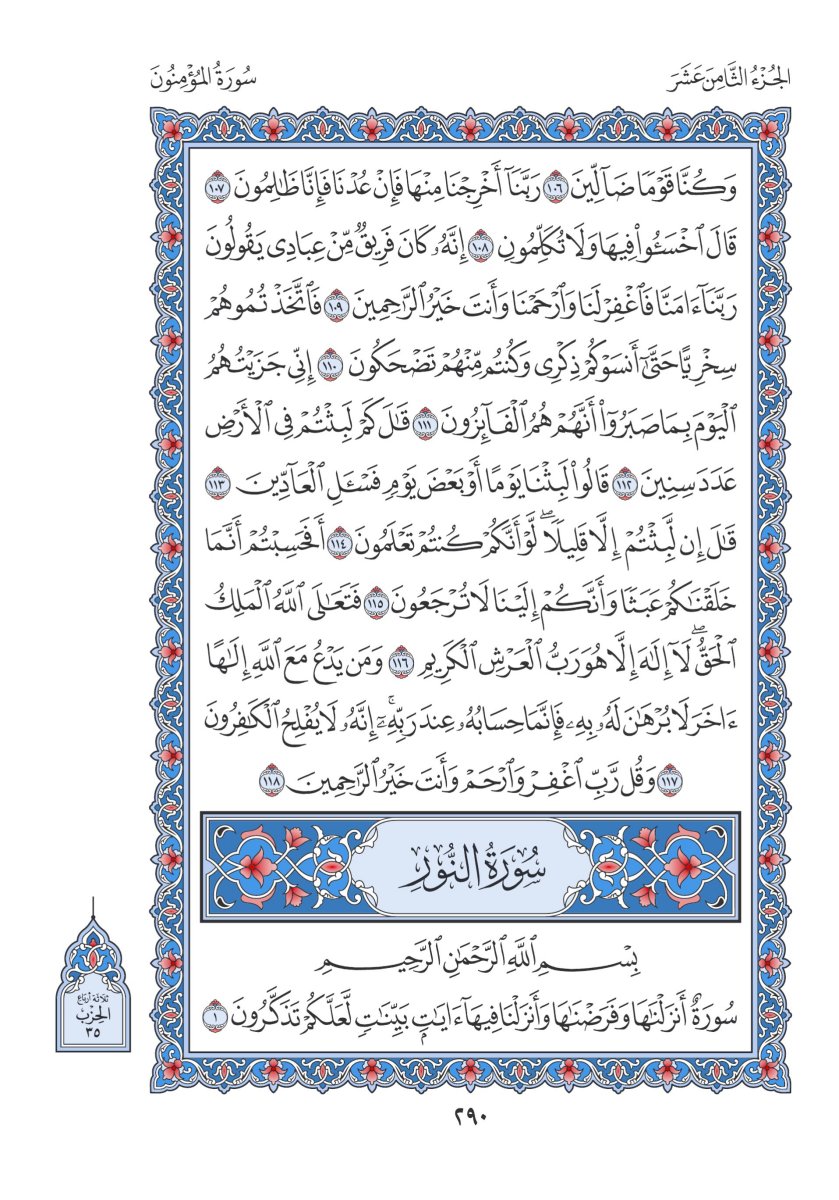 الجُزْءُ الثَّامِنَ عَشَرَ
سُورَةُ المُؤْمِنُونَ
وَكُنَّا قَوْمًا ضَآلِّينَ ١٠٦ رَبَّنَآ أَخْرِجْنَا مِنْهَا فَإِنْ عُدْنَا فَإِنَّا ظَٰلِمُونَ ١٠٧
قَالَ ٱخْسَـُٔوا۟ فِيهَا وَلَا تُكَلِّمُونِ ١٠٨ إِنَّهُۥ كَانَ فَرِيقٌ مِّنْ عِبَادِى يَقُولُونَ
رَبَّنَآ ءَامَنَّا فَٱغْفِرْ لَنَا وَٱرْحَمْنَا وَأَنتَ خَيْرُ ٱلرَّٰحِمِينَ ١٠٩ فَٱتَّخَذْتُمُوهُمْ
سِخْرِيًّا حَتَّىٰٓ أَنسَوْكُمْ ذِكْرِى وَكُنتُم مِّنْهُمْ تَضْحَكُونَ ١١٠ إِنِّى جَزَيْتُهُمُ
ٱلْيَوْمَ بِمَا صَبَرُوٓا۟ أَنَّهُمْ هُمُ ٱلْفَآئِزُونَ ١١١ قَٰلَ كَمْ لَبِثْتُمْ فِى ٱلْأَرْضِ
عَدَدَ سِنِينَ ١١٢ قَالُوا۟ لَبِثْنَا يَوْمًا أَوْ بَعْضَ يَوْمٍ فَسْـَٔلِ ٱلْعَآدِّينَ ١١٣
قَٰلَ إِن لَّبِثْتُمْ إِلَّا قَلِيلًا ۖ لَّوْ أَنَّكُمْ كُنتُمْ تَعْلَمُونَ ١١٤ أَفَحَسِبْتُمْ أَنَّمَا
خَلَقْنَٰكُمْ عَبَثًا وَأَنَّكُمْ إِلَيْنَا لَا تُرْجَعُونَ ١١٥ فَتَعَٰلَى ٱللَّهُ ٱلْمَلِكُ
ٱلْحَقُّ ۖ لَآ إِلَٰهَ إِلَّا هُوَ رَبُّ ٱلْعَرْشِ ٱلْكَرِيمِ ١١٦ وَمَن يَدْعُ مَعَ ٱللَّهِ إِلَٰهًا
ءَاخَرَ لَا بُرْهَٰنَ لَهُۥ بِهِۦ فَإِنَّمَا حِسَابُهُۥ عِندَ رَبِّهِۦٓ ۚ إِنَّهُۥ لَا يُفْلِحُ ٱلْكَٰفِرُونَ
١١٧ وَقُل رَّبِّ ٱغْفِرْ وَٱرْحَمْ وَأَنتَ خَيْرُ ٱلرَّٰحِمِينَ ١١٨
سُورَةُ النُّورِ
بِسْمِ ٱللَّهِ ٱلرَّحْمَٰنِ ٱلرَّحِيمِ
سُورَةٌ أَنزَلْنَٰهَا وَفَرَضْنَٰهَا وَأَنزَلْنَا فِيهَآ ءَايَٰتٍۭ بَيِّنَٰتٍ لَّعَلَّكُمْ تَذَكَّرُونَ ١
ثلاثة أرباع
الحِزْب
٣٥
٢٩٠